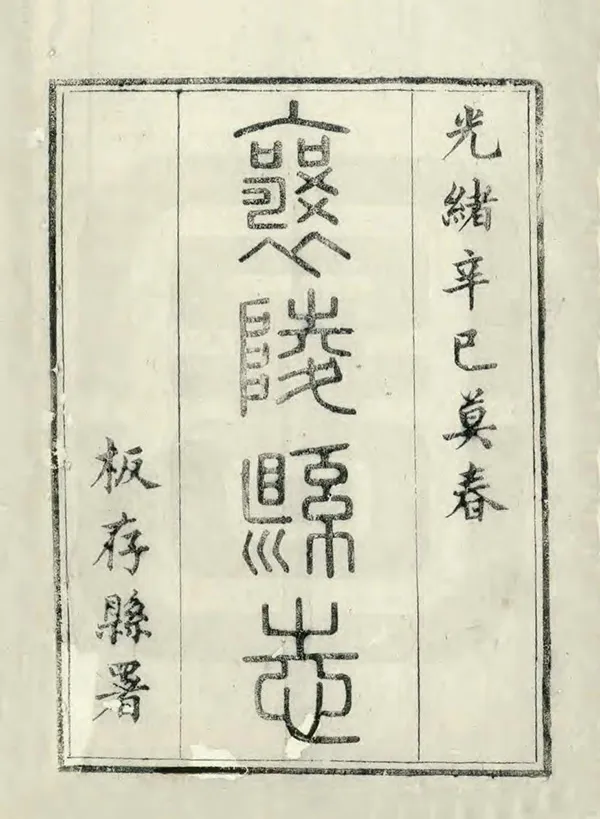 光緒辛巳莫春
襄陵縣志
板存縣署